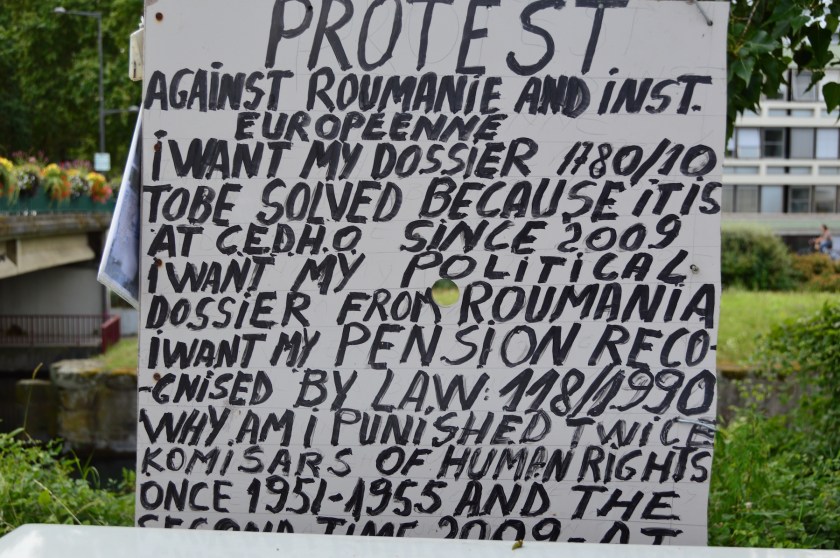 PROTEST
AGAINST ROUMANIE AND INST.
EUROPÉENNE
I WANT MY DOSSIER 1780/10
TOBE SOLVED BECAUSE IT IS
AT C.E.D.H.O SINCE 2009
I WANT MY POLITICAL
DOSSIER FROM ROUMANIA
I WANT MY PENSION RECO-
-GNISED BY LAW: 118/1990
WHY AM I PUNISHED TWICE
KOMISARS OF HUMAN RIGHTS
ONCE 1951-1955 AND THE
SECOND TIME 2009-AT